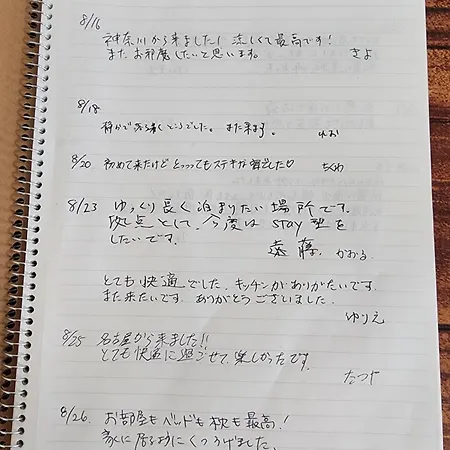 8/16
神奈川から来ました! 涼しくて最高です!
またお邪魔したいと思います。 きよ
8/18
静かで居心地良いところでした。また来ます。 れお
8/20 初めて来たけどとっってもステキな宿でした♡ ちくわ
8/23 ゆっくり長く泊まりたい場所です。
拠点として、今度は stay型を
したいです。
遠藤 かおる
とても快適でした。キッチンがありがたいです。
また来たいです。ありがとうございました。
ゆりえ
8/25 名古屋から来ました!!
とても快適に過ごせて、楽しかったです。
たつや
8/26. お部屋もベッドも枕も最高!
家に居るようにくつろげました。